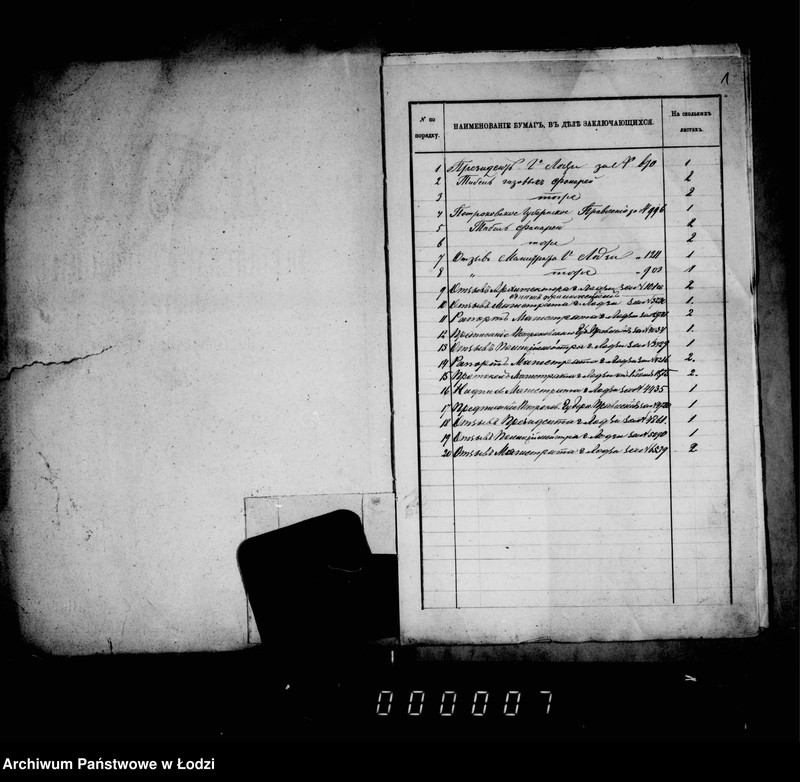 1
№ по порядку.
НАИМЕНОВАНІЕ БУМАГЪ, ВЪ ДѢЛѢ ЗАКЛЮЧАЮЩИХСЯ.
На сколькихъ листахъ.
1 Президентъ Г. Лодзи за № 690 1
2 Табель газовыхъ фонарей 2
3 тоже 2
4 Петроковское Губернское Правленіе за № 996 1
5 Табель фонарей 2
6 тоже 2
7 Отзывъ Магистрата Г. Лодзи " 1
8 " тоже " 903 1
9 Отзывъ Архитектора г. Лодзи за № 2
10 Отзывъ Магистрата г. Лодзи за № 1
11 Рапортъ Магистрата г. Лодзи за № 2
12 Предписаніе Петроковскаго Губ. Правленія за № 1
13 Отзывъ Полиціймейстера г. Лодзи за № 1
14 Рапортъ Магистрата г. Лодзи за № 2.
15 Магистрата г. Лодзи 2.
16 Магистрата г. Лодзи за № 4935 1
17 Предписаніе Петроков. Губерн. Правленія за № 1
18 Отзывъ Президента г. Лодзи за № 1
19 Отзывъ Полиціймейстера г. Лодзи за № 1
20 Отзывъ Магистрата г. Лодзи за № 2
000007
Archiwum Państwowe w Łodzi